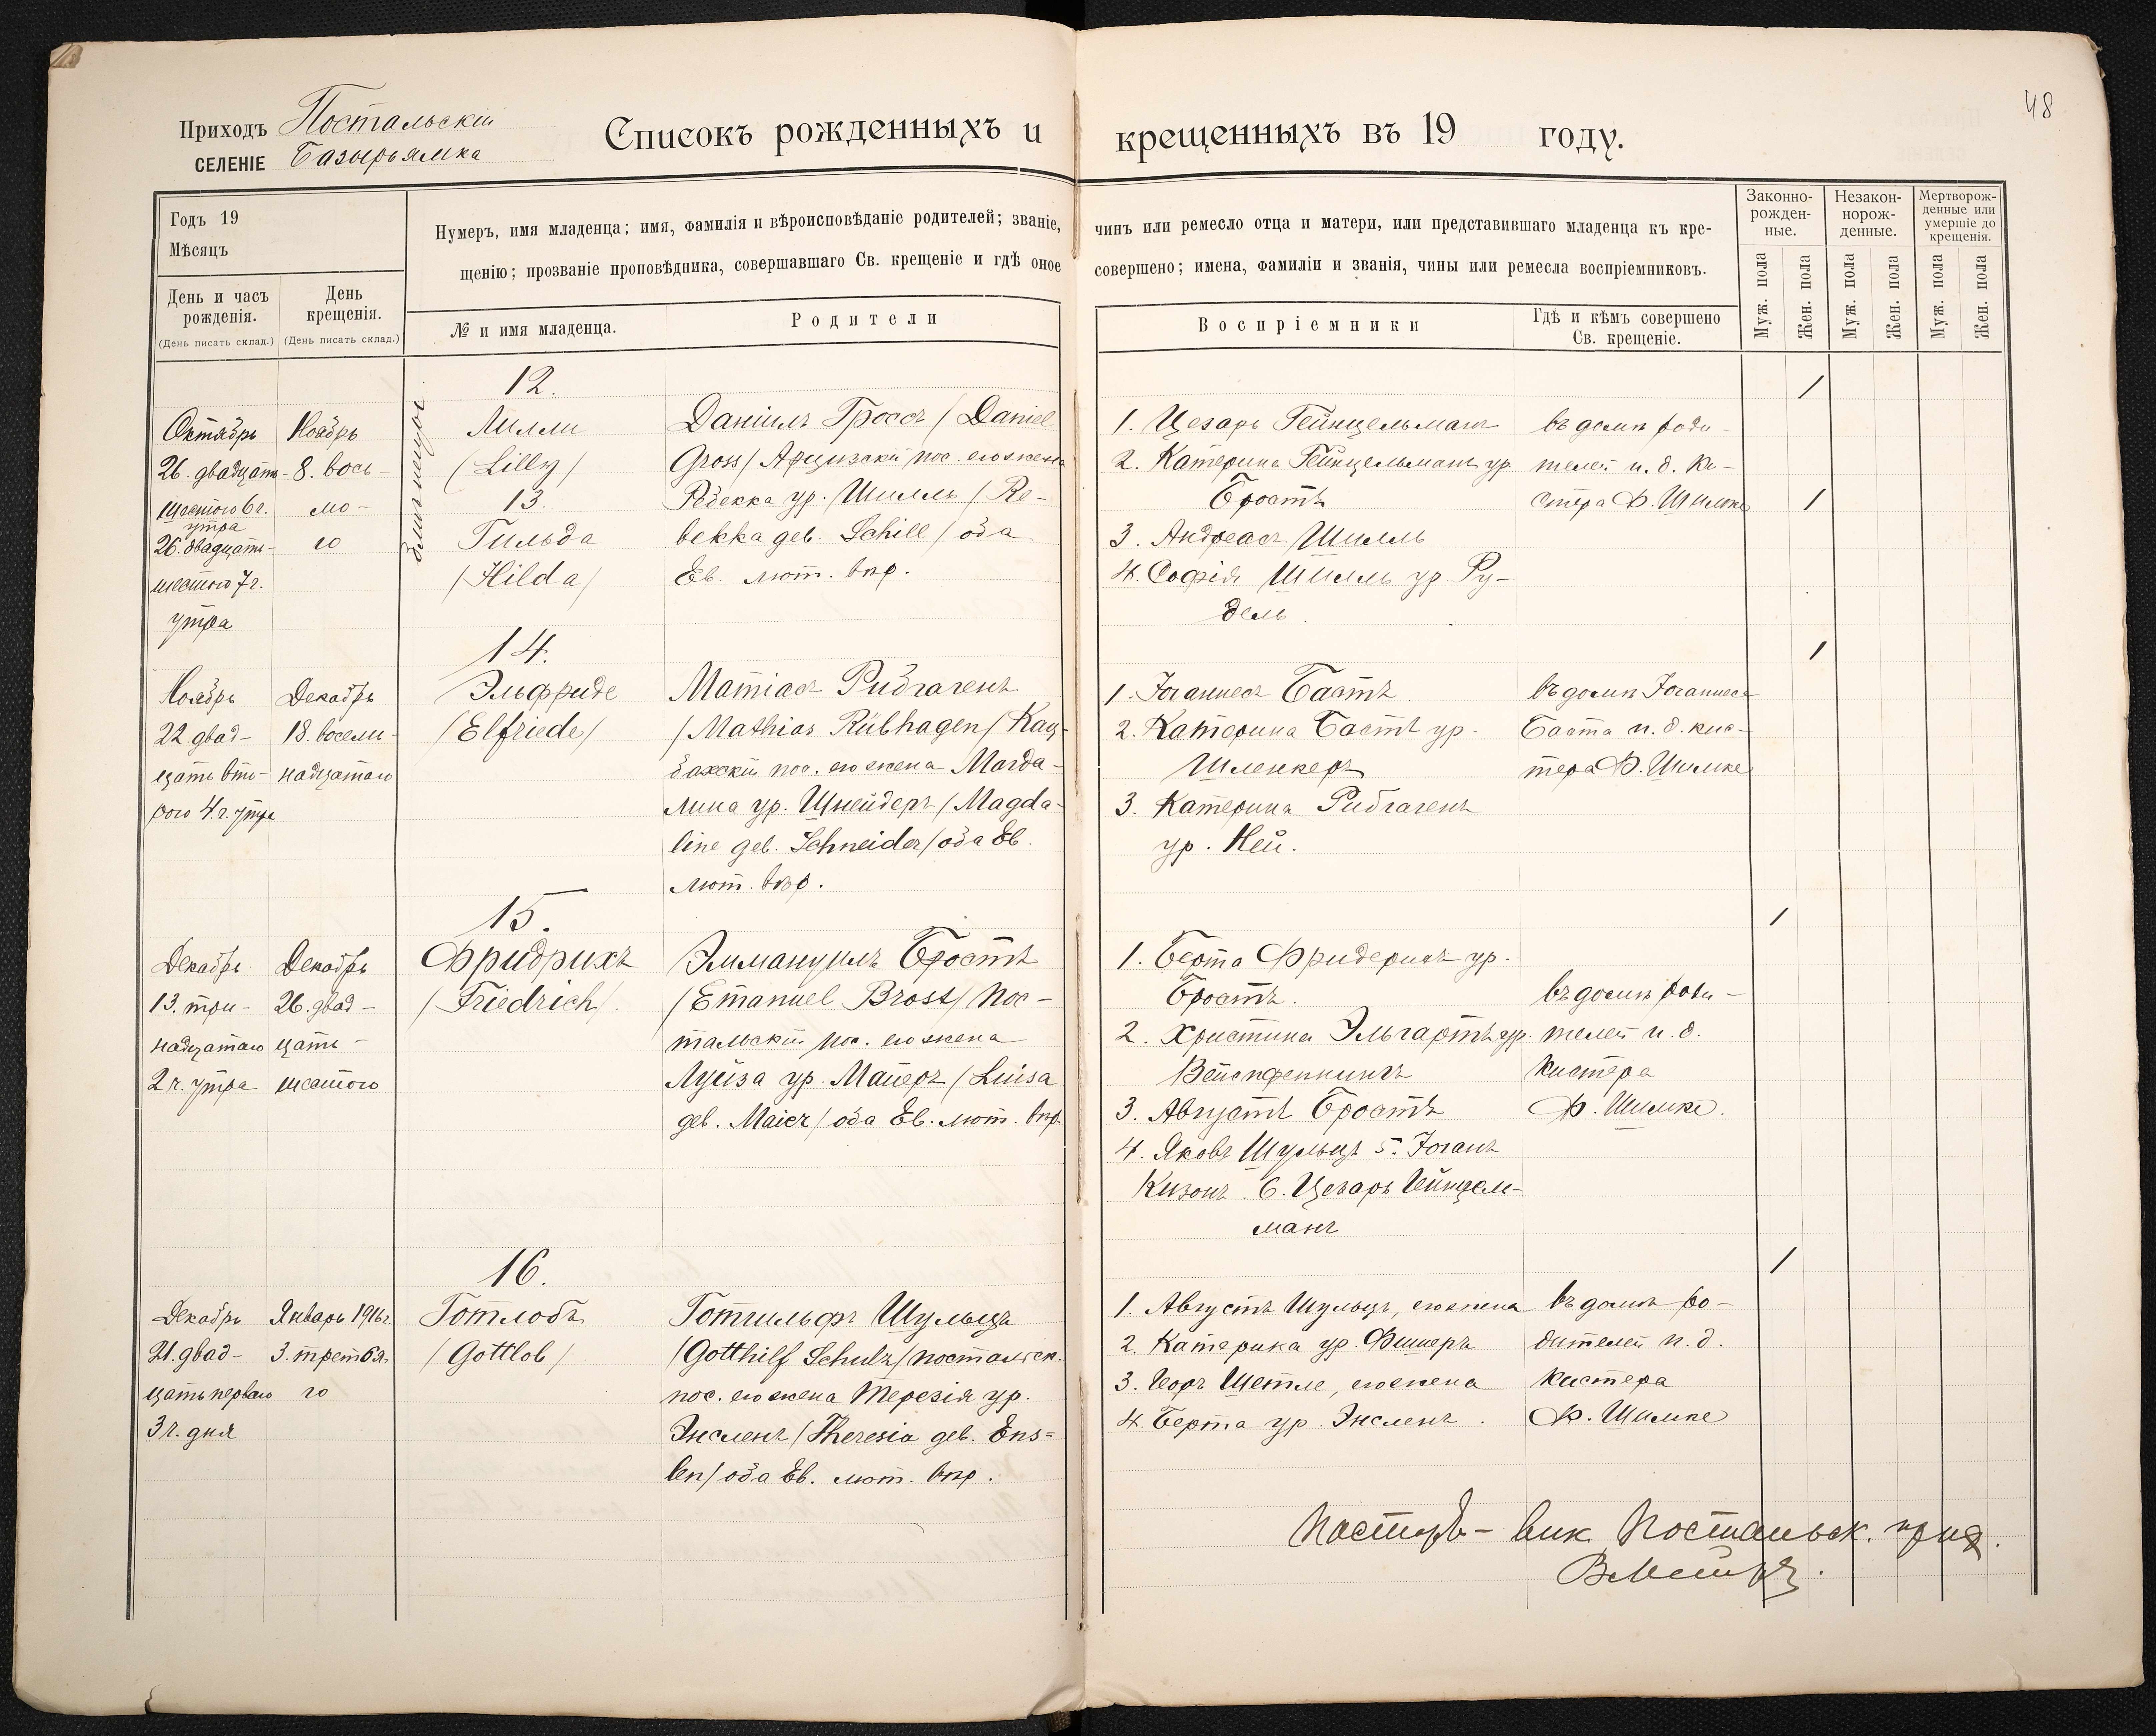 48
Приходъ Постальскій
СЕЛЕНІЕ Базырьямка
Списокъ рожденныхъ и крещенныхъ въ 19 году.
Годъ 19
Мѣсяцъ
День и часъ рожденія.
(День писать склад.)
День крещенія.
(День писать склад.)
Нумеръ, имя младенца; имя, фамилія и вѣроисповѣданіе родителей; званіе, чинъ или ремесло отца и матери, или представившаго младенца къ кре-
щенію; прозваніе проповѣдника, совершавшаго Св. крещеніе и гдѣ оное совершено; имена, фамиліи и званія, чины или ремесла воспріемниковъ.
№ и имя младенца.
Родители
Воспріемники
Гдѣ и кѣмъ совершено
Св. крещеніе.
Законно-
рожден-
ные.
Незакон-
норож-
денные.
Мертворож-
денные или
умершіе до
крещенія.
Муж. пола
Жен. пола
Муж. пола
Жен. пола
Муж. пола
Жен. пола
Октябрь
26. двадцать-
шестого 6 ч.
утра
26. двадцать-
шестого 7 ч.
утра
Ноябрь
8. вось-
мо-
го
близнецы
12.
Лилли
(Lilly)
13.
Гильда
/Hilda/
Даніилъ Гроссъ / Daniel
Gross / Арцизскій пос. его жена
Ребекка ур. Шилль / Re-
bekka geb. Schill / оба
Ев. лют. впр.
1. Цезарь Гейнцельманъ
2. Катерина Гейнцельманъ ур.
Бростъ
3. Андреасъ Шилль
4. Софія Шилль ур. Ру-
дель
въ домѣ роди-
телей и. д. Ки-
стера Ф. Шимке
1
1
Ноябрь
22 двад-
цать вто-
рого 4 ч. утра
Декабрь
18. восем-
надцатаго
14.
Эльфриде
/Elfriede/
Матіасъ Рибгагенъ
/Mathias Rübhagen/ Кац-
бахскій пос. его жена Магда-
лина ур. Шнейдеръ / Magda-
line geb. Schneider / оба Ев.
лют. впр.
1. Іоганнесъ Бастъ
2. Катерина Бастъ ур.
Шленкеръ
3. Катерина Рибгагенъ
ур. Ней.
въ домѣ Іоганнеса
Баста и. д. кис-
тера Ф. Шимке
1
Декабрь
13. три-
надцатаго
2 ч. утра
Декабрь
26. двад-
цать-
шестого
15.
Фридрихъ
/Friedrich/.
Эммануилъ Бростъ
/Emanuel Brost/ Пос-
тальскій пос. его жена
Луиза ур. Майеръ / Luisa
geb. Maier / оба Ев. лют. впр.
1. Берта Фридерихъ ур.
Бростъ.
2. Христина Эльгартъ ур.
3. Августъ Бростъ
4. Яковъ Шульцъ 5. Іоганъ
Кизонъ. 6. Цезарь Гейнцель-
манъ
въ домѣ роди-
телей и. д.
Кистера
Ф. Шимке.
1
Декабрь
21. двад-
цать перваго
3 ч. дня
Январь 1916 г.
3. третья-
го
16.
Готлобъ
/Gottlob/
Готгильфъ Шульцъ
/Gotthilf Schulz/ постальск.
пос. его жена Терезія ур.
Энсленъ / Theresia geb. Ens=
len / оба Ев. лют. впр.
1. Августъ Шульцъ, его жена
2. Катерина ур. Фишеръ
3. Георъ Шетле, его жена
4. Берта ур. Энсленъ.
въ домѣ ро-
дителей и. д.
Кистера
Ф. Шимке
1
Пасторъ-вик. Постальск. прих.